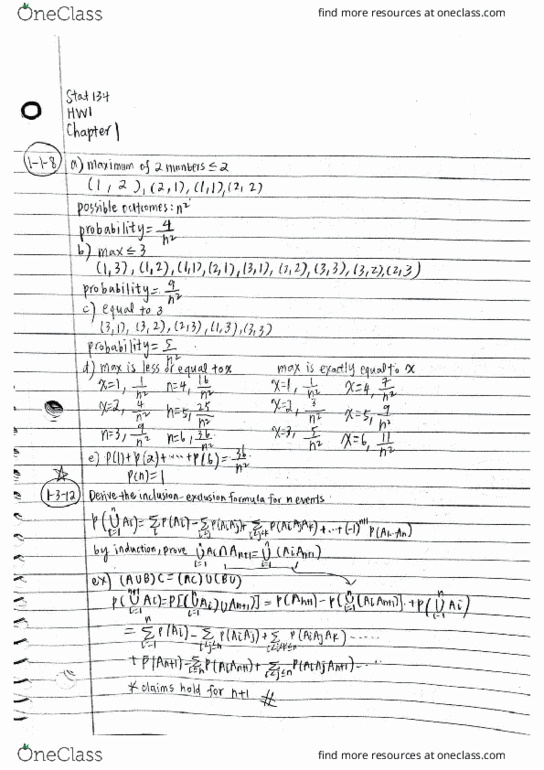 OneClass find more resources at oneclass.com
Stat 134
HW1
Chapter 1
1-1-8 a) maximum of 2 numbers ≤ 2
(1, 2), (2,1), (1,1), (2, 2)
possible outcomes: n²
probability = 4/n²
b) max ≤ 3
(1,3), (1,2), (1,1), (2,1), (3,1), (2,2), (3,3), (3,2), (2,3)
probability = 9/n²
c) equal to 3
(3,1), (3,2), (2,3), (1,3), (3,3)
probability = 5/n²
d) max is less or equal to x max is exactly equal to x
x=1, 1/n² n=4, 16/n² x=1, 1/n² x=4, 7/n²
x=2, 4/n² n=5, 25/n² x=2, 3/n² x=5, 9/n²
n=3, 9/n² n=6, 36/n² x=3, 5/n² x=6, 11/n²
e) P(1)+P(2)+...+P(6) = 36/n²
P(n)=1
1-3-12 Derive the inclusion-exclusion formula for n events
P(∪ᵢ₌₁ⁿ Ai) = Σᵢ P(Ai) - Σᵢ<ⱼ P(AiAj) + Σᵢ<ⱼ<ₖ P(AiAjAk) + ... + (-1)ⁿ⁺¹ P(A1...An)
by induction, prove ∪ᵢ₌₁ⁿ Ai ∩ An+1 = ∪ᵢ₌₁ⁿ (AiAn+1)
ex) (A∪B)C = (AC)∪(BC)
P(∪ᵢ₌₁ⁿ⁺¹ Ai) = P[(∪ᵢ₌₁ⁿ Ai) ∪ An+1)] = P(An+1) - P(∪ᵢ₌₁ⁿ (AiAn+1)] + P(∪ᵢ₌₁ⁿ Ai)
= Σᵢ₌₁ⁿ P(Ai) - Σᵢ<ⱼ≤ₙ P(AiAj) + Σᵢ<ⱼ<ₖ≤ₙ P(AiAjAk) -....
+ P(An+1) - Σᵢ≤ₙ P(AiAn+1) + Σᵢ<ⱼ≤ₙ P(AiAjAn+1) -....
* claims hold for n+1 #
OneClass find more resources at oneclass.com